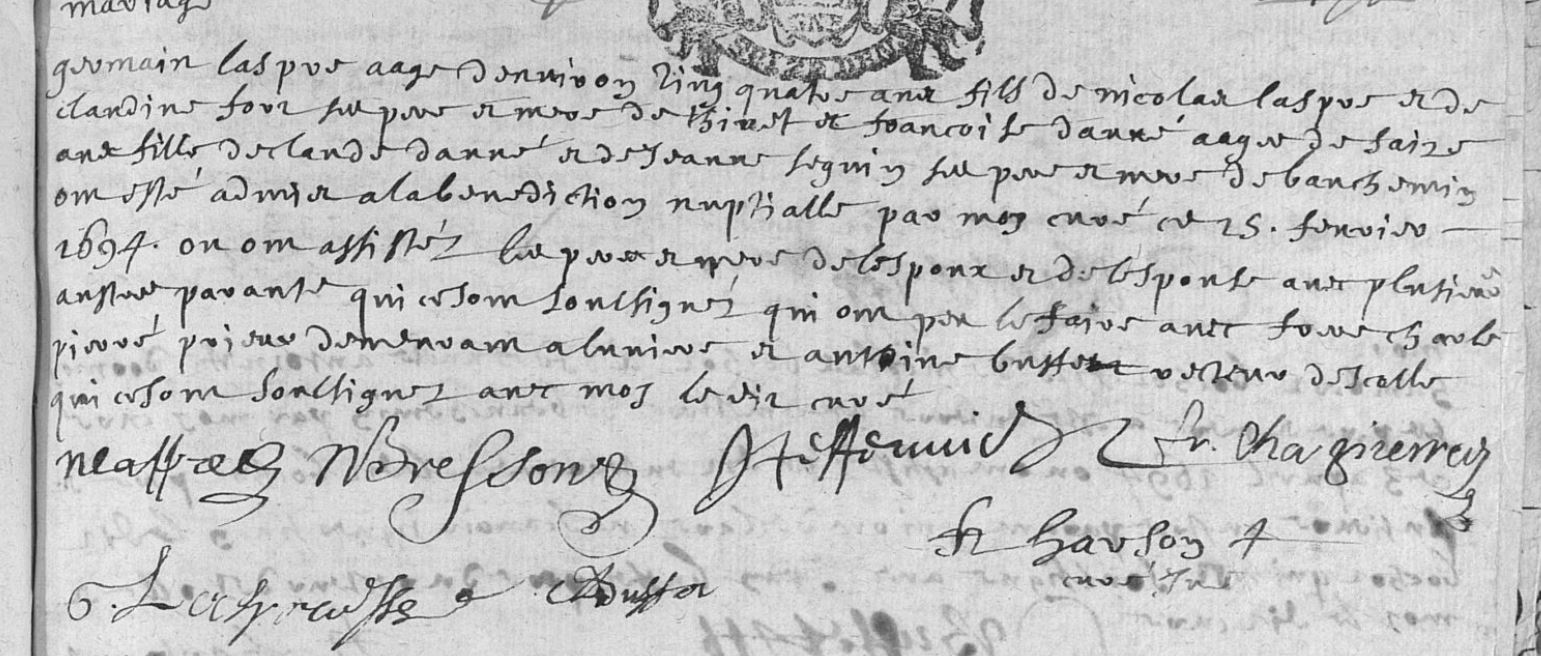 mariage
germain laspre aage denviron vingt quatre ans fils de nicolas laspre et de
claudine four ses pere et mere de et francoise danré aagee de saize
ans fille de claude danré et de Jeanne seguin ses pere et mere de bauchemin
ont esté admis a la benediction nuptialle par moy curé ce 15. fevrier
1694. ou ont assistéz les peres et mere de lespoux et de lespouse avec plusieurs
austres parants qui ce sont soussignéz qui ont peu le faire avec frere charle
pierré prieur demeurant a luniere et anthoine busset recteur descolle
qui ce sont soussignez avec moy le dit curé
N Bressons fr. Cha pierrey
harson
curé
G. Laspre Busset